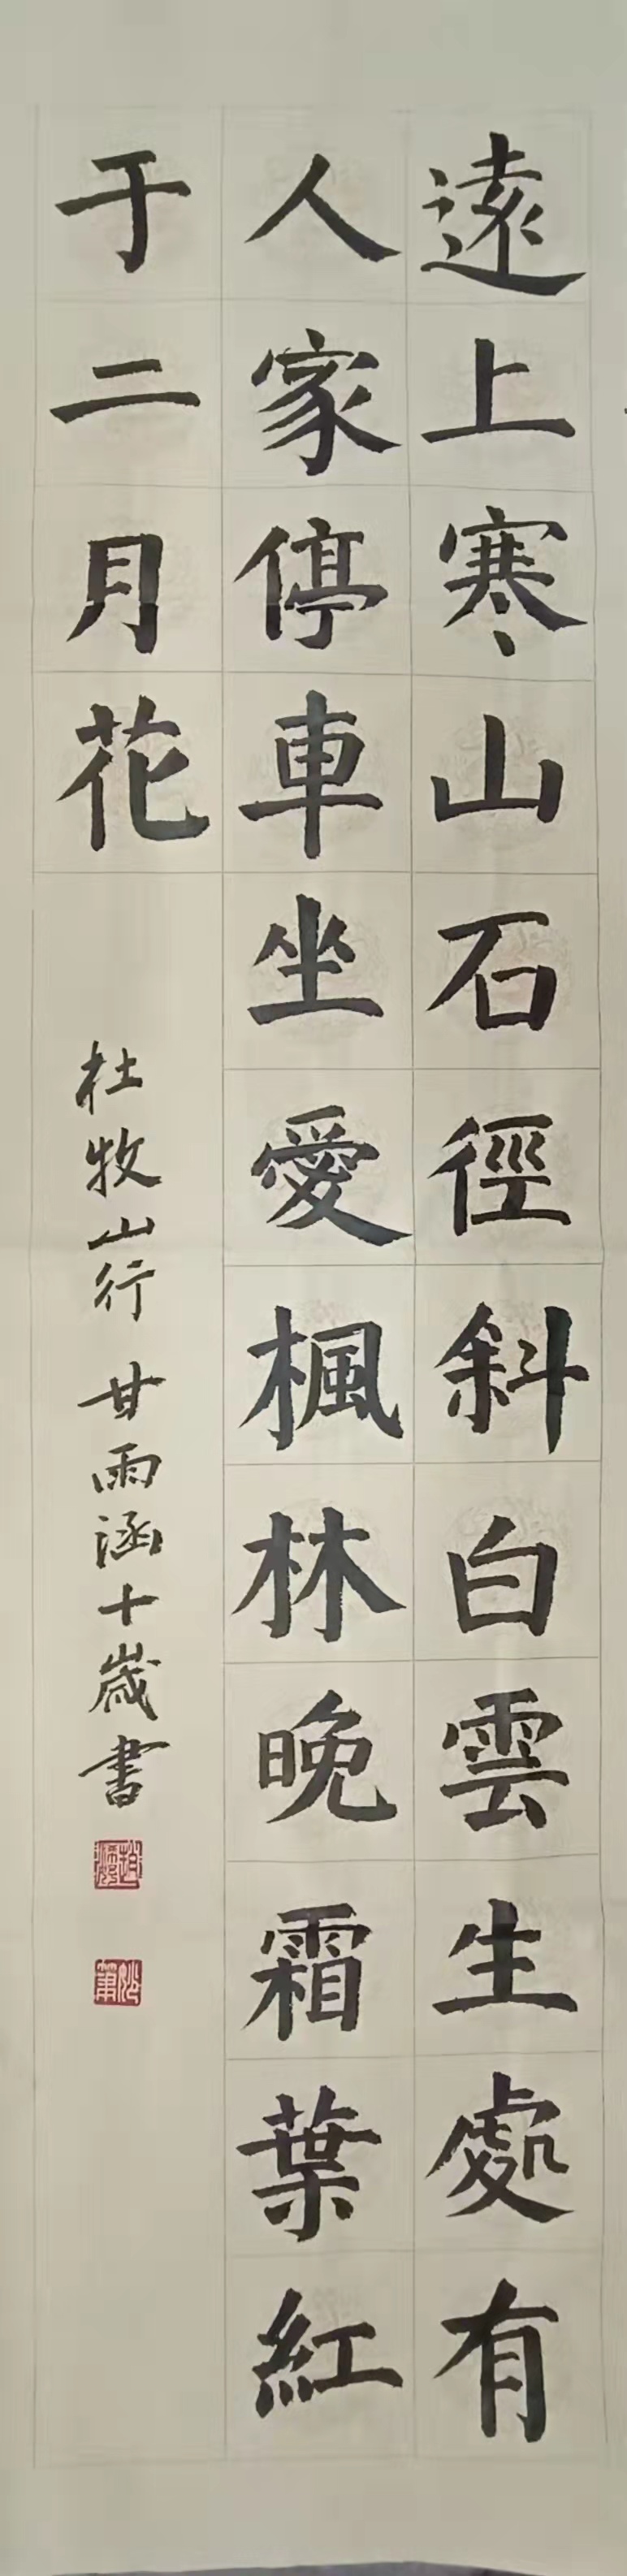 遠上寒山石徑斜白雲生處有
人家停車坐愛楓林晚霜葉紅
于二月花
杜牧山行 甘雨涵十歲書